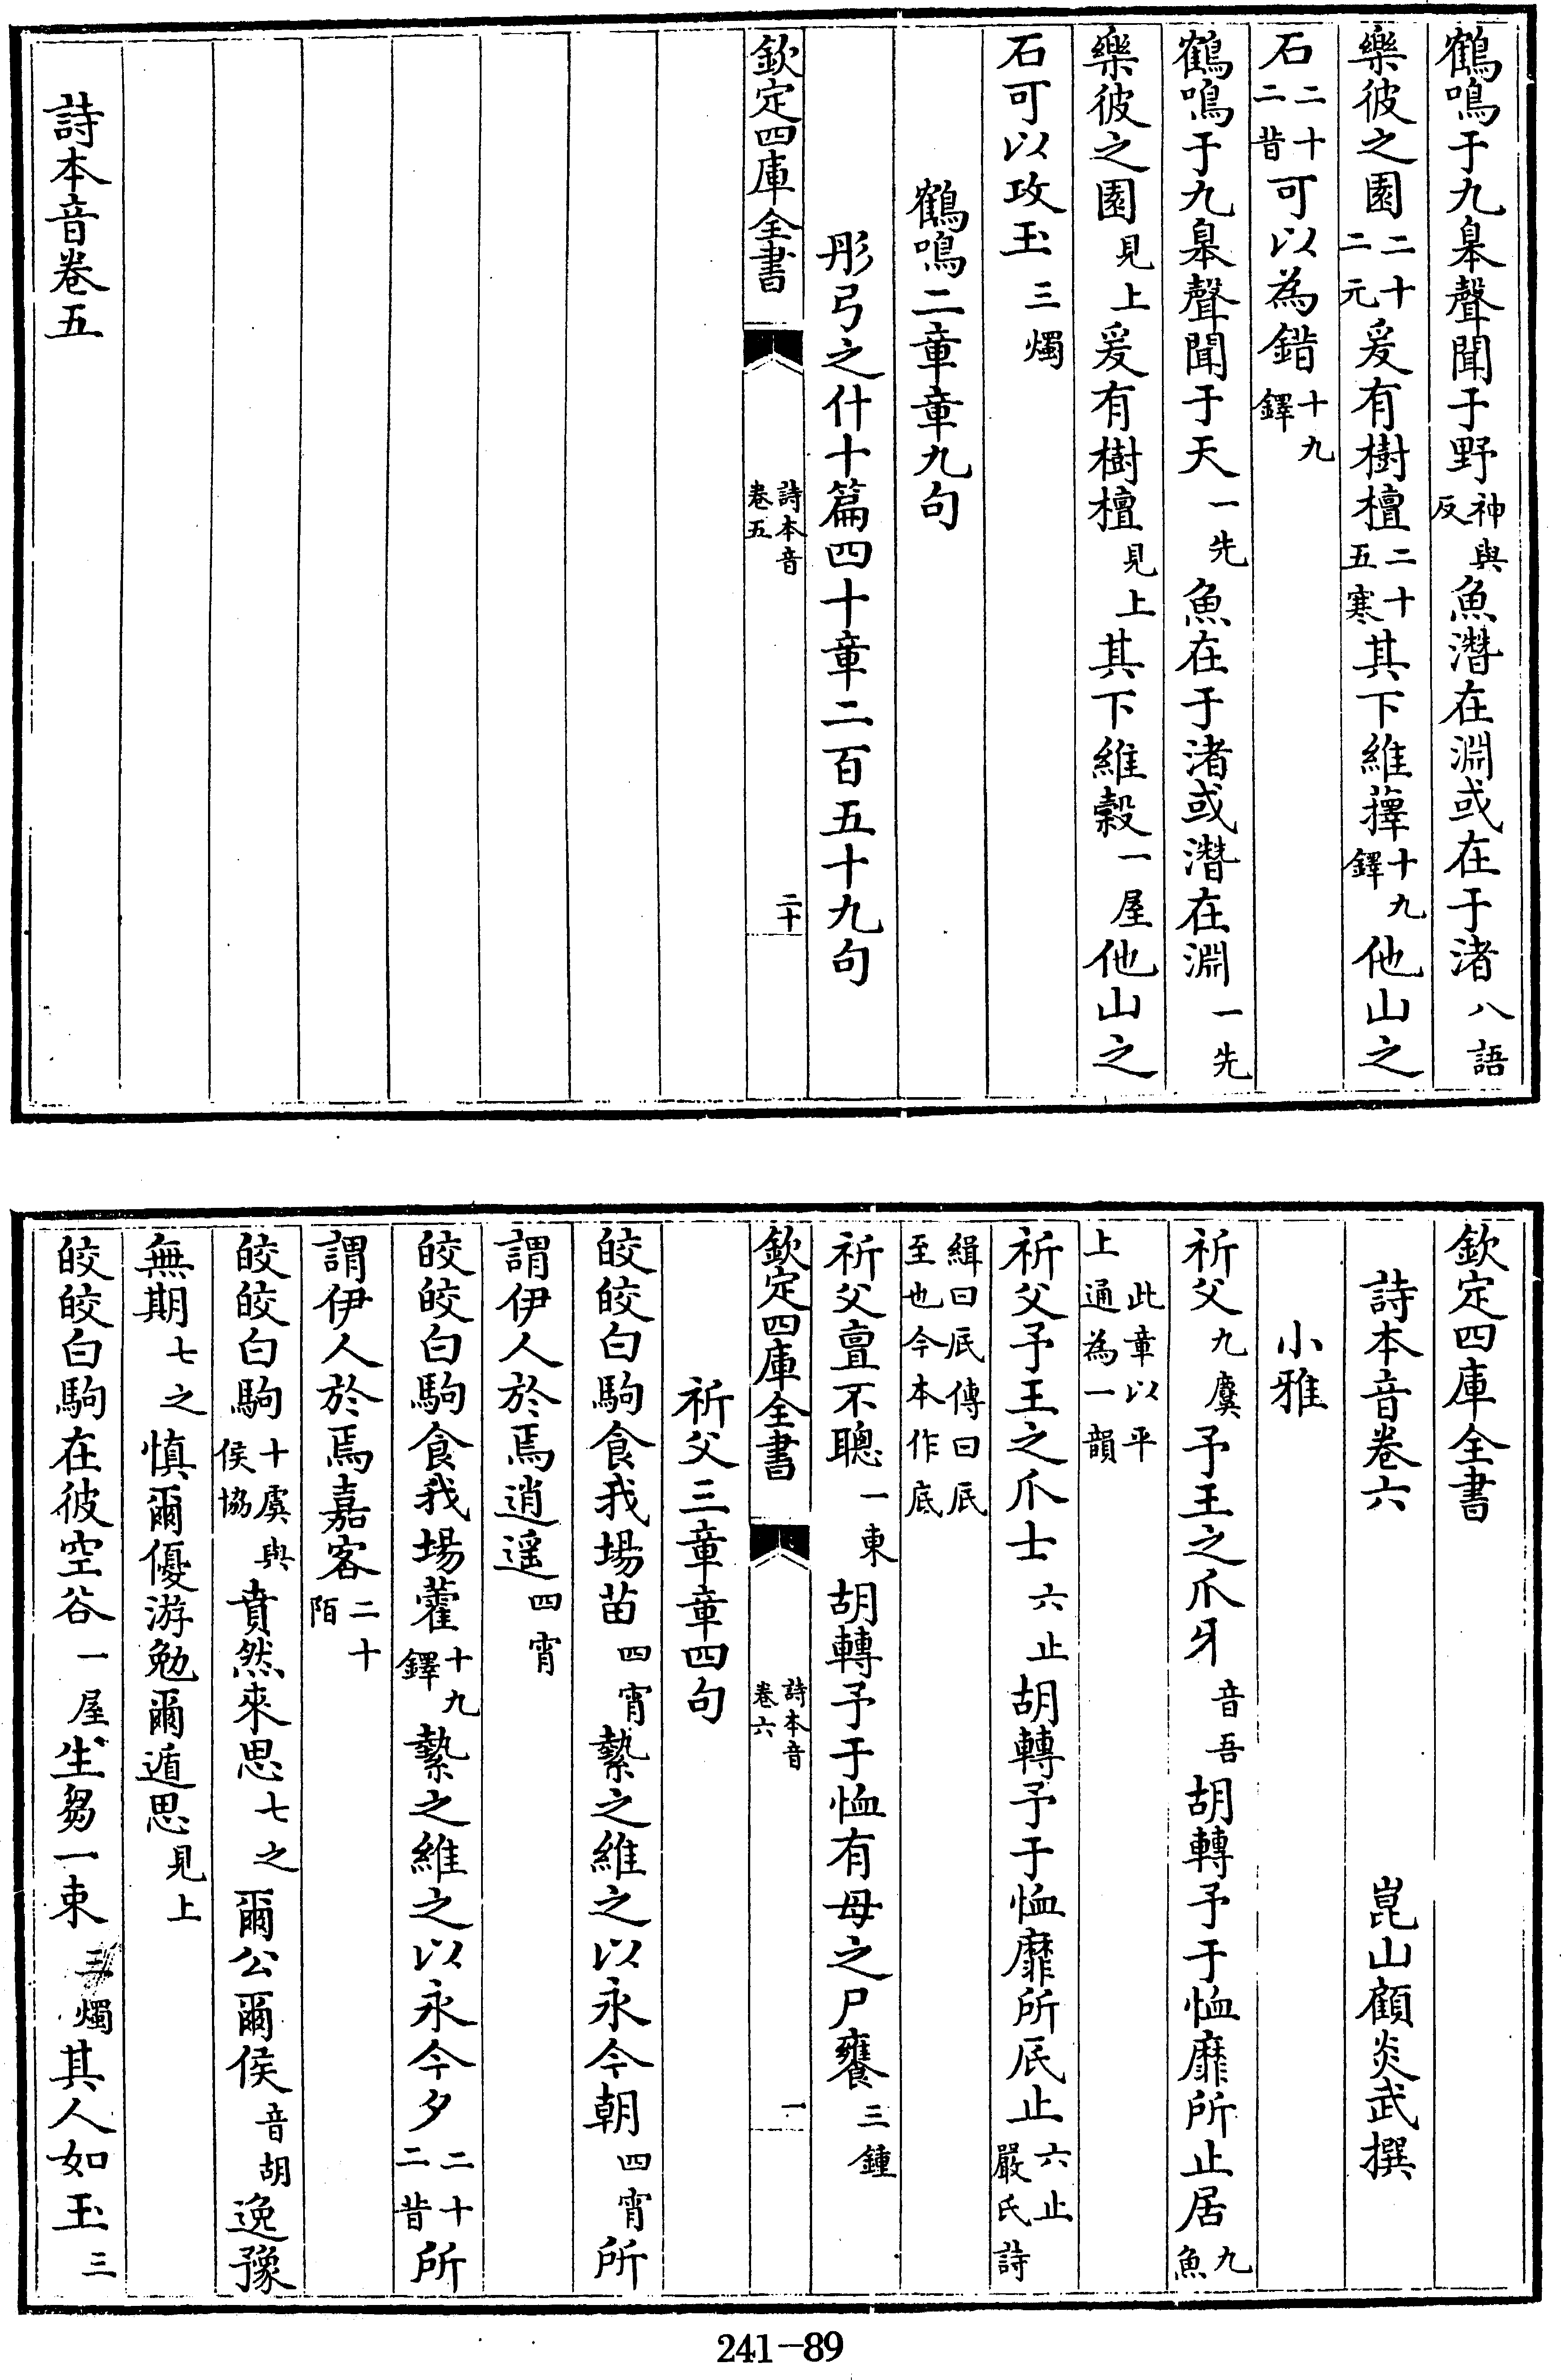 鶴鳴于九臯聲聞于野神與反魚潛在淵或在于渚八語
樂彼之園二十二元爰有樹檀二十五寒其下維蘀十九鐸他山之
石二十二昔可以為錯十九鐸
鶴鳴于九臯聲聞于天一先魚在于渚或潛在淵一先
樂彼之園見上爰有樹檀見上其下維榖一屋他山之
石可以攻玉三燭
鶴鳴二章章九句
彤弓之什十篇四十章二百五十九句
欽定四庫全書 詩本音卷五 二十
詩本音卷五
欽定四庫全書
詩本音卷六 崑山顧炎武撰
小雅
祈父九麌予王之爪牙音吾胡轉予于恤靡所止居九魚
此章以平上通為一韻
祈父予王之爪士六止胡轉予于恤靡所厎止六止嚴氏詩
緝曰厎傳曰厎至也今本作底
祈父亶不聰一東胡轉予于恤有母之尸饔三鍾
欽定四庫全書 詩本音卷六 一
祈父三章章四句
皎皎白駒食我場苗四宵縶之維之以永今朝四宵所
謂伊人於焉逍遥四宵
皎皎白駒食我場藿十九鐸縶之維之以永今夕二十二昔所
謂伊人於焉嘉客二十陌
皎皎白駒十虞與侯協賁然來思七之爾公爾侯音胡逸豫
無期七之慎爾優游勉爾遁思見上
皎皎白駒在彼空谷一屋生芻一束三燭其人如玉三
241-89